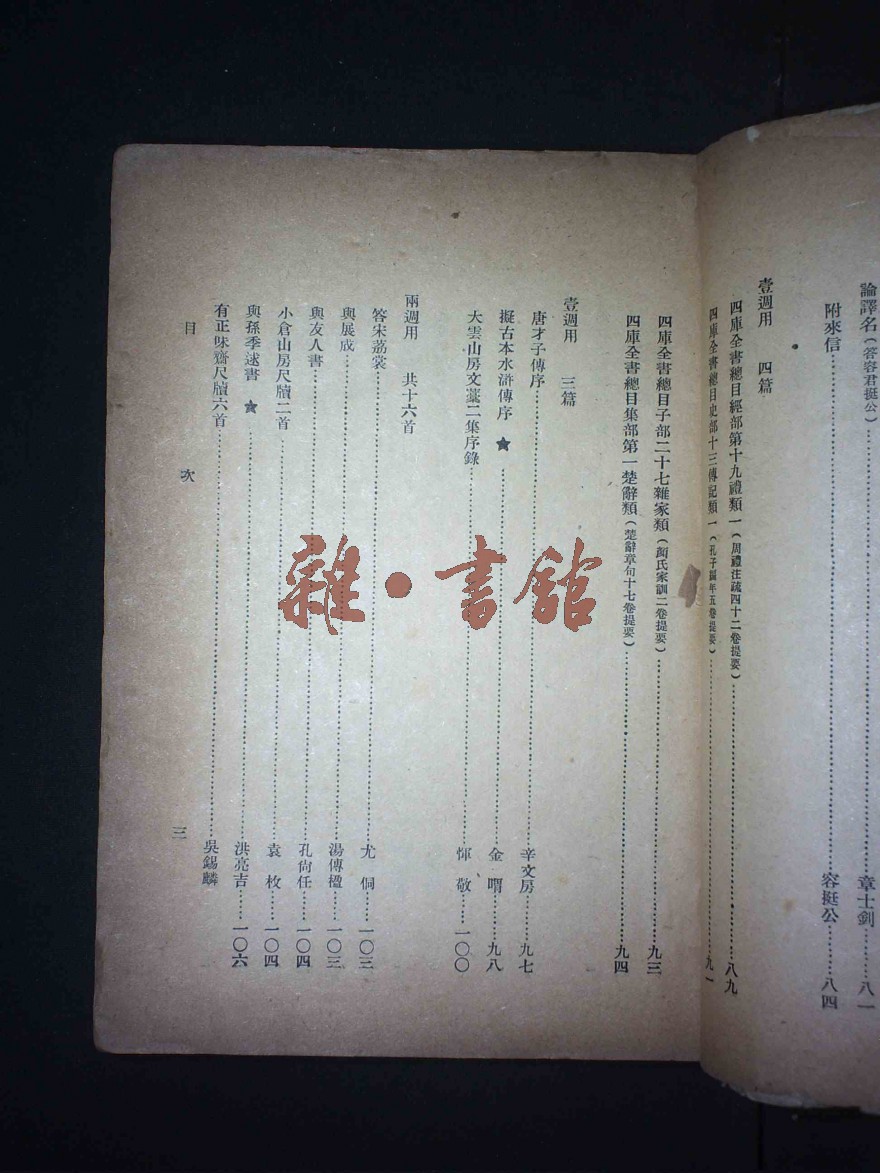 論譯名(答容君挺公)……章士釗……八一
附來信……容挺公……八四
壹週用 四篇
四庫全書總目經部第十九禮類一(周禮注疏四十二卷提要)……八九
四庫全書總目史部十三傳記類一(孔子編年五卷提要)……九一
四庫全書總目子部二十七雜家類(顏氏家訓二卷提要)……九三
四庫全書總目集部第一楚辭類(楚辭章句十七卷提要)……九四
壹週用 三篇
唐才子傳序……辛文房……九七
擬古本水滸傳序 ★……金喟……九八
大雲山房文藁二集序錄……惲敬……一〇〇
兩週用 共十六首
答宋荔裳……尤侗……一〇三
與展成……湯傳楹……一〇三
與友人書……孔尙任……一〇四
小倉山房尺牘二首……袁枚……一〇四
與孫季逑書 ★……洪亮吉……一〇六
有正味齋尺牘六首……吳錫麟
目次 三
雜·書館